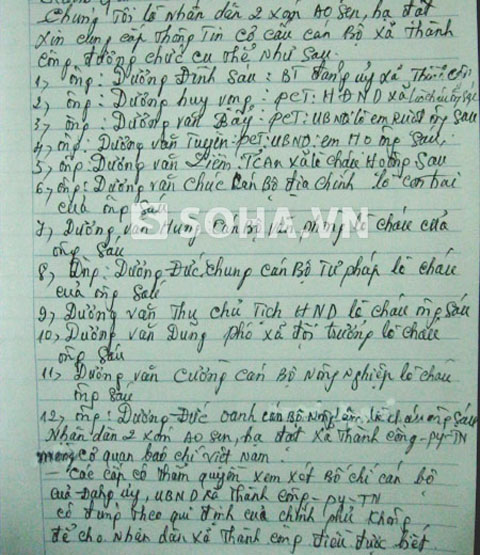 Chúng Tôi là Nhân dân 2 xóm AO sen, hạ đạt
xin cung cấp Thông Tin cơ cấu cán Bộ xã Thành
công, đương chức cụ thể Như Sau:
1, ông: Dương Đình Sáu: BT đảng ủy xã
2, ông: Dương huy vọng: PCT: HĐND xã
3, ông: Dương văn Bẩy: PCT: UBND là em Ruột ông Sáu
4, ông: Dương văn Tuyên: PCT: UBND: em Họ ông Sáu,
5, ông: Dương văn Liêm, TCAN xã là cháu Họ ông Sáu
6, ông: Dương văn chúc cán Bộ địa chính là con trai
của ông Sáu
SOHA.VN
7, Dương văn Hưng cán Bộ văn phòng là cháu của
ông Sáu
8, ông: Dương Đức chung cán Bộ Tư pháp là cháu
của ông Sáu
9, Dương văn Thu chủ Tịch HND là cháu ông Sáu
10, Dương văn Dũng phó xã đội trưởng là cháu
ông Sáu
11, Dương văn Cường cán Bộ Nông Nghiệp là cháu
ông Sáu
12, ông: Dương Đức oanh cán Bộ Nông Lâm, là cháu ông Sáu
Nhân dân 2 xóm AO sen, hạ đạt xã Thành công - PY - TN
mong cơ quan báo chí Việt Nam
- Các cấp có thẩm quyền xem xét Bố chí cán bộ
của Đảng ủy, UBND xã Thành công - PY - TN
có đúng theo qui định của chính phủ không
để cho Nhân dân xã Thành công điều được biết